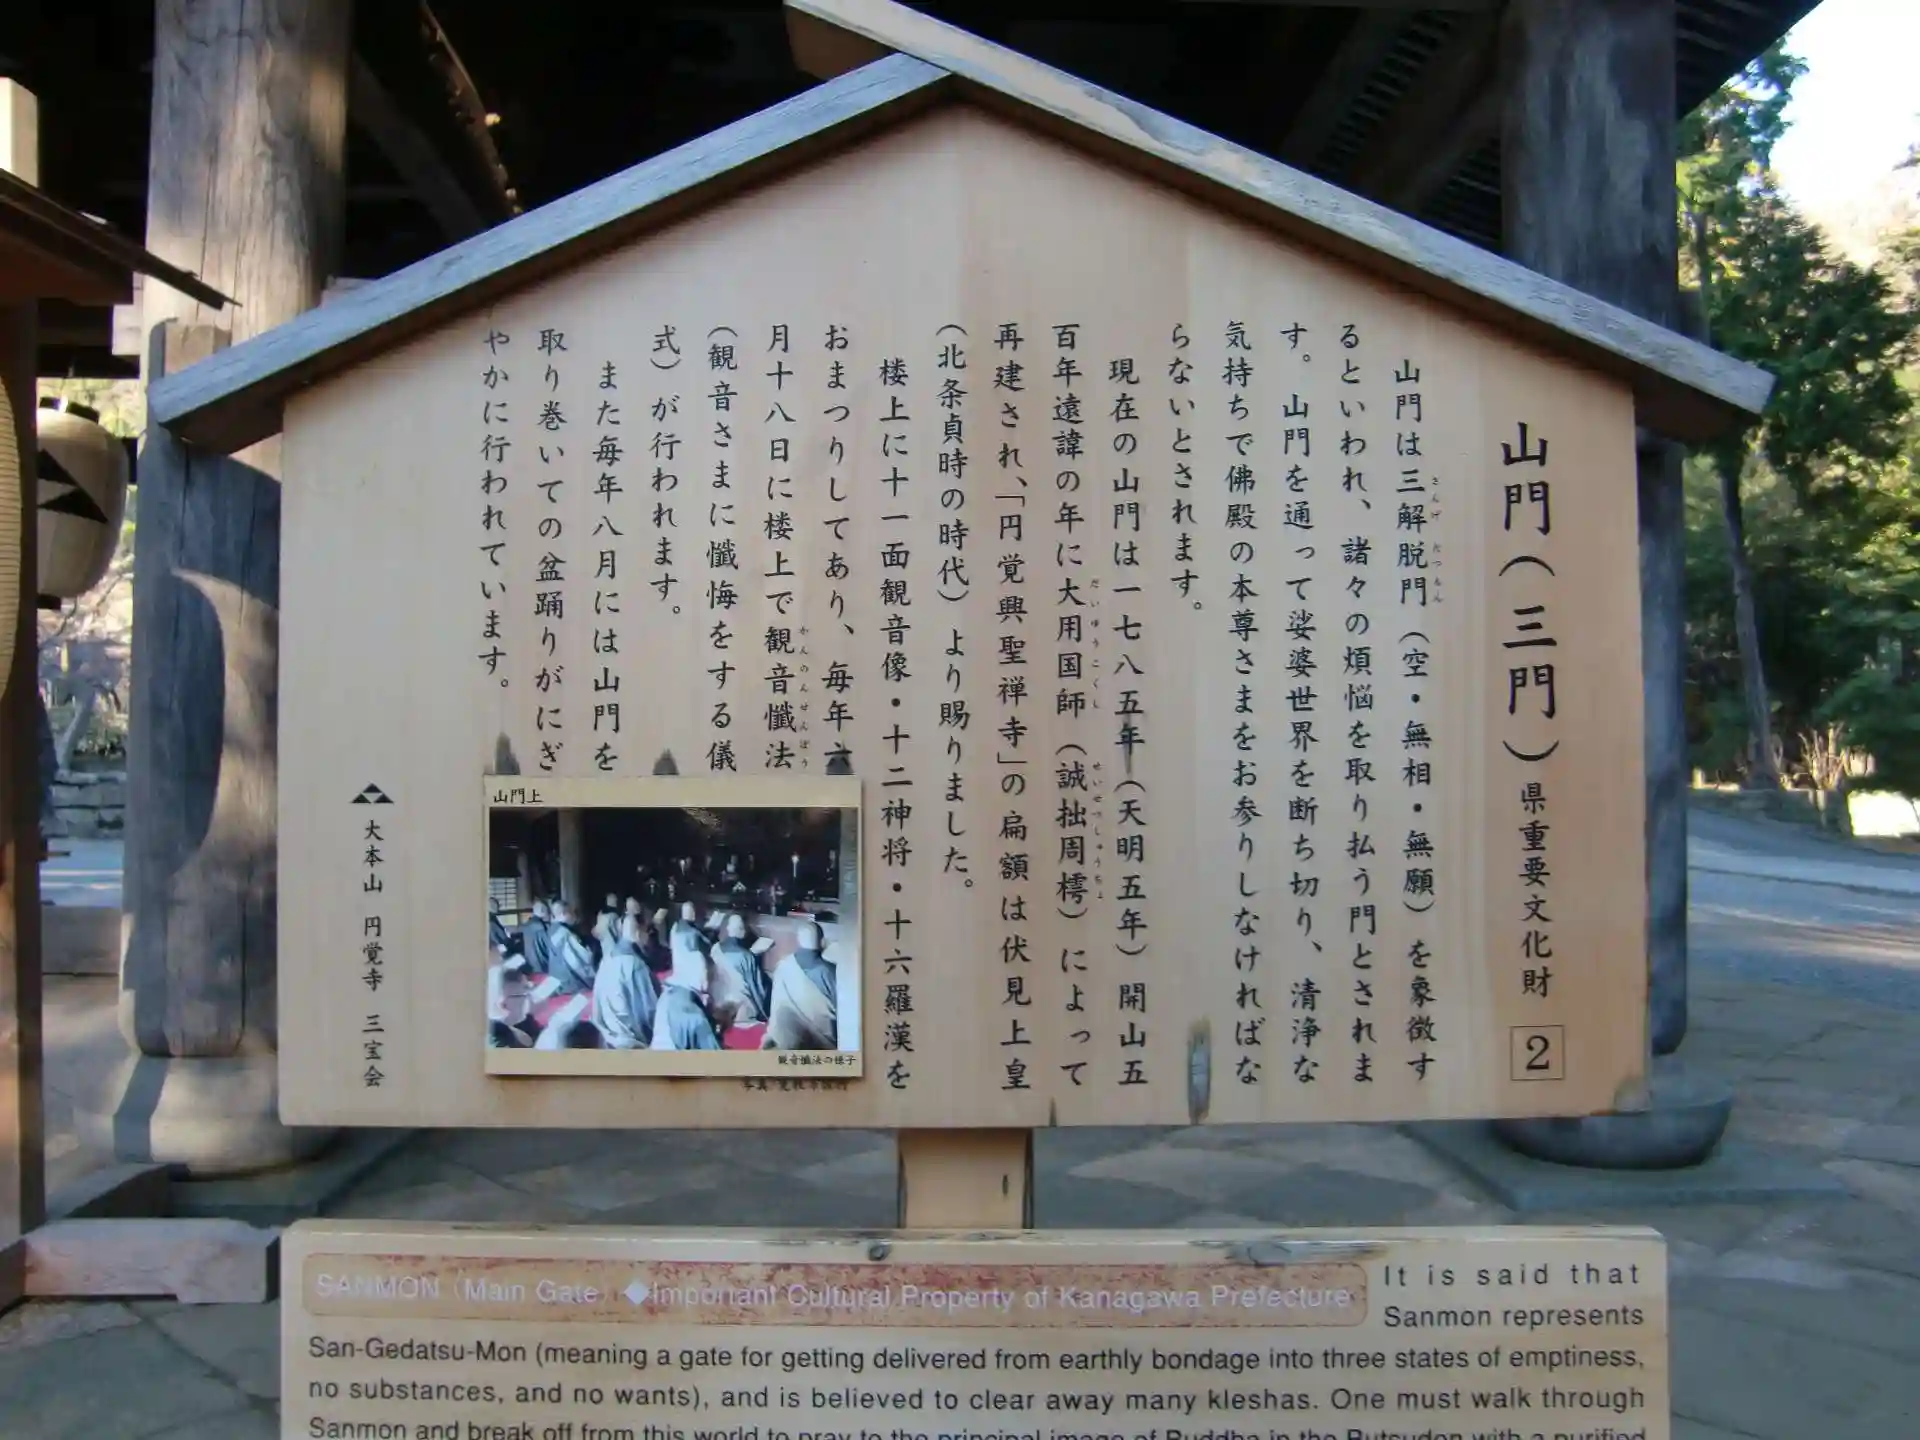 山門(三門) 県重要文化財 2
山門は三解脱門(空・無相・無願)を象徴す
るといわれ、諸々の煩悩を取り払う門とされま
す。山門を通って娑婆世界を断ち切り、清浄な
気持ちで佛殿の本尊さまをお参りしなければな
らないとされます。
現在の山門は一七八五年(天明五年)開山五
百年遠諱の年に大用国師(誠拙周樗)によって
再建され、「円覚興聖禅寺」の扁額は伏見上皇
(北条貞時の時代)より賜りました。
楼上に十一面観音像・十二神将・十六羅漢を
おまつりしてあり、毎年六
月十八日に楼上で観音懺法
(観音さまに懺悔をする儀
式)が行われます。
また毎年八月には山門を
取り巻いての盆踊りがにぎ
やかに行われています。
山門上
観音懺法の様子
大本山 円覚寺 三宝会
SANMON (Main Gate) ◆Important Cultural Property of Kanagawa Prefecture
It is said that
Sanmon represents
San-Gedatsu-Mon (meaning a gate for getting delivered from earthly bondage into three states of emptiness,
no substances, and no wants), and is believed to clear away many kleshas. One must walk through
Sanmon and break off from this world to pray to the principal image of Buddha in the Butsuden with a purified